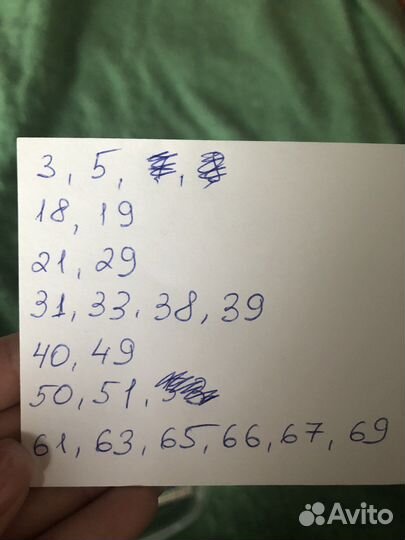 3, 5,
18, 19
21, 29
31, 33, 38, 39
40, 49
50, 51,
61, 63, 65, 66, 67, 69
Avito